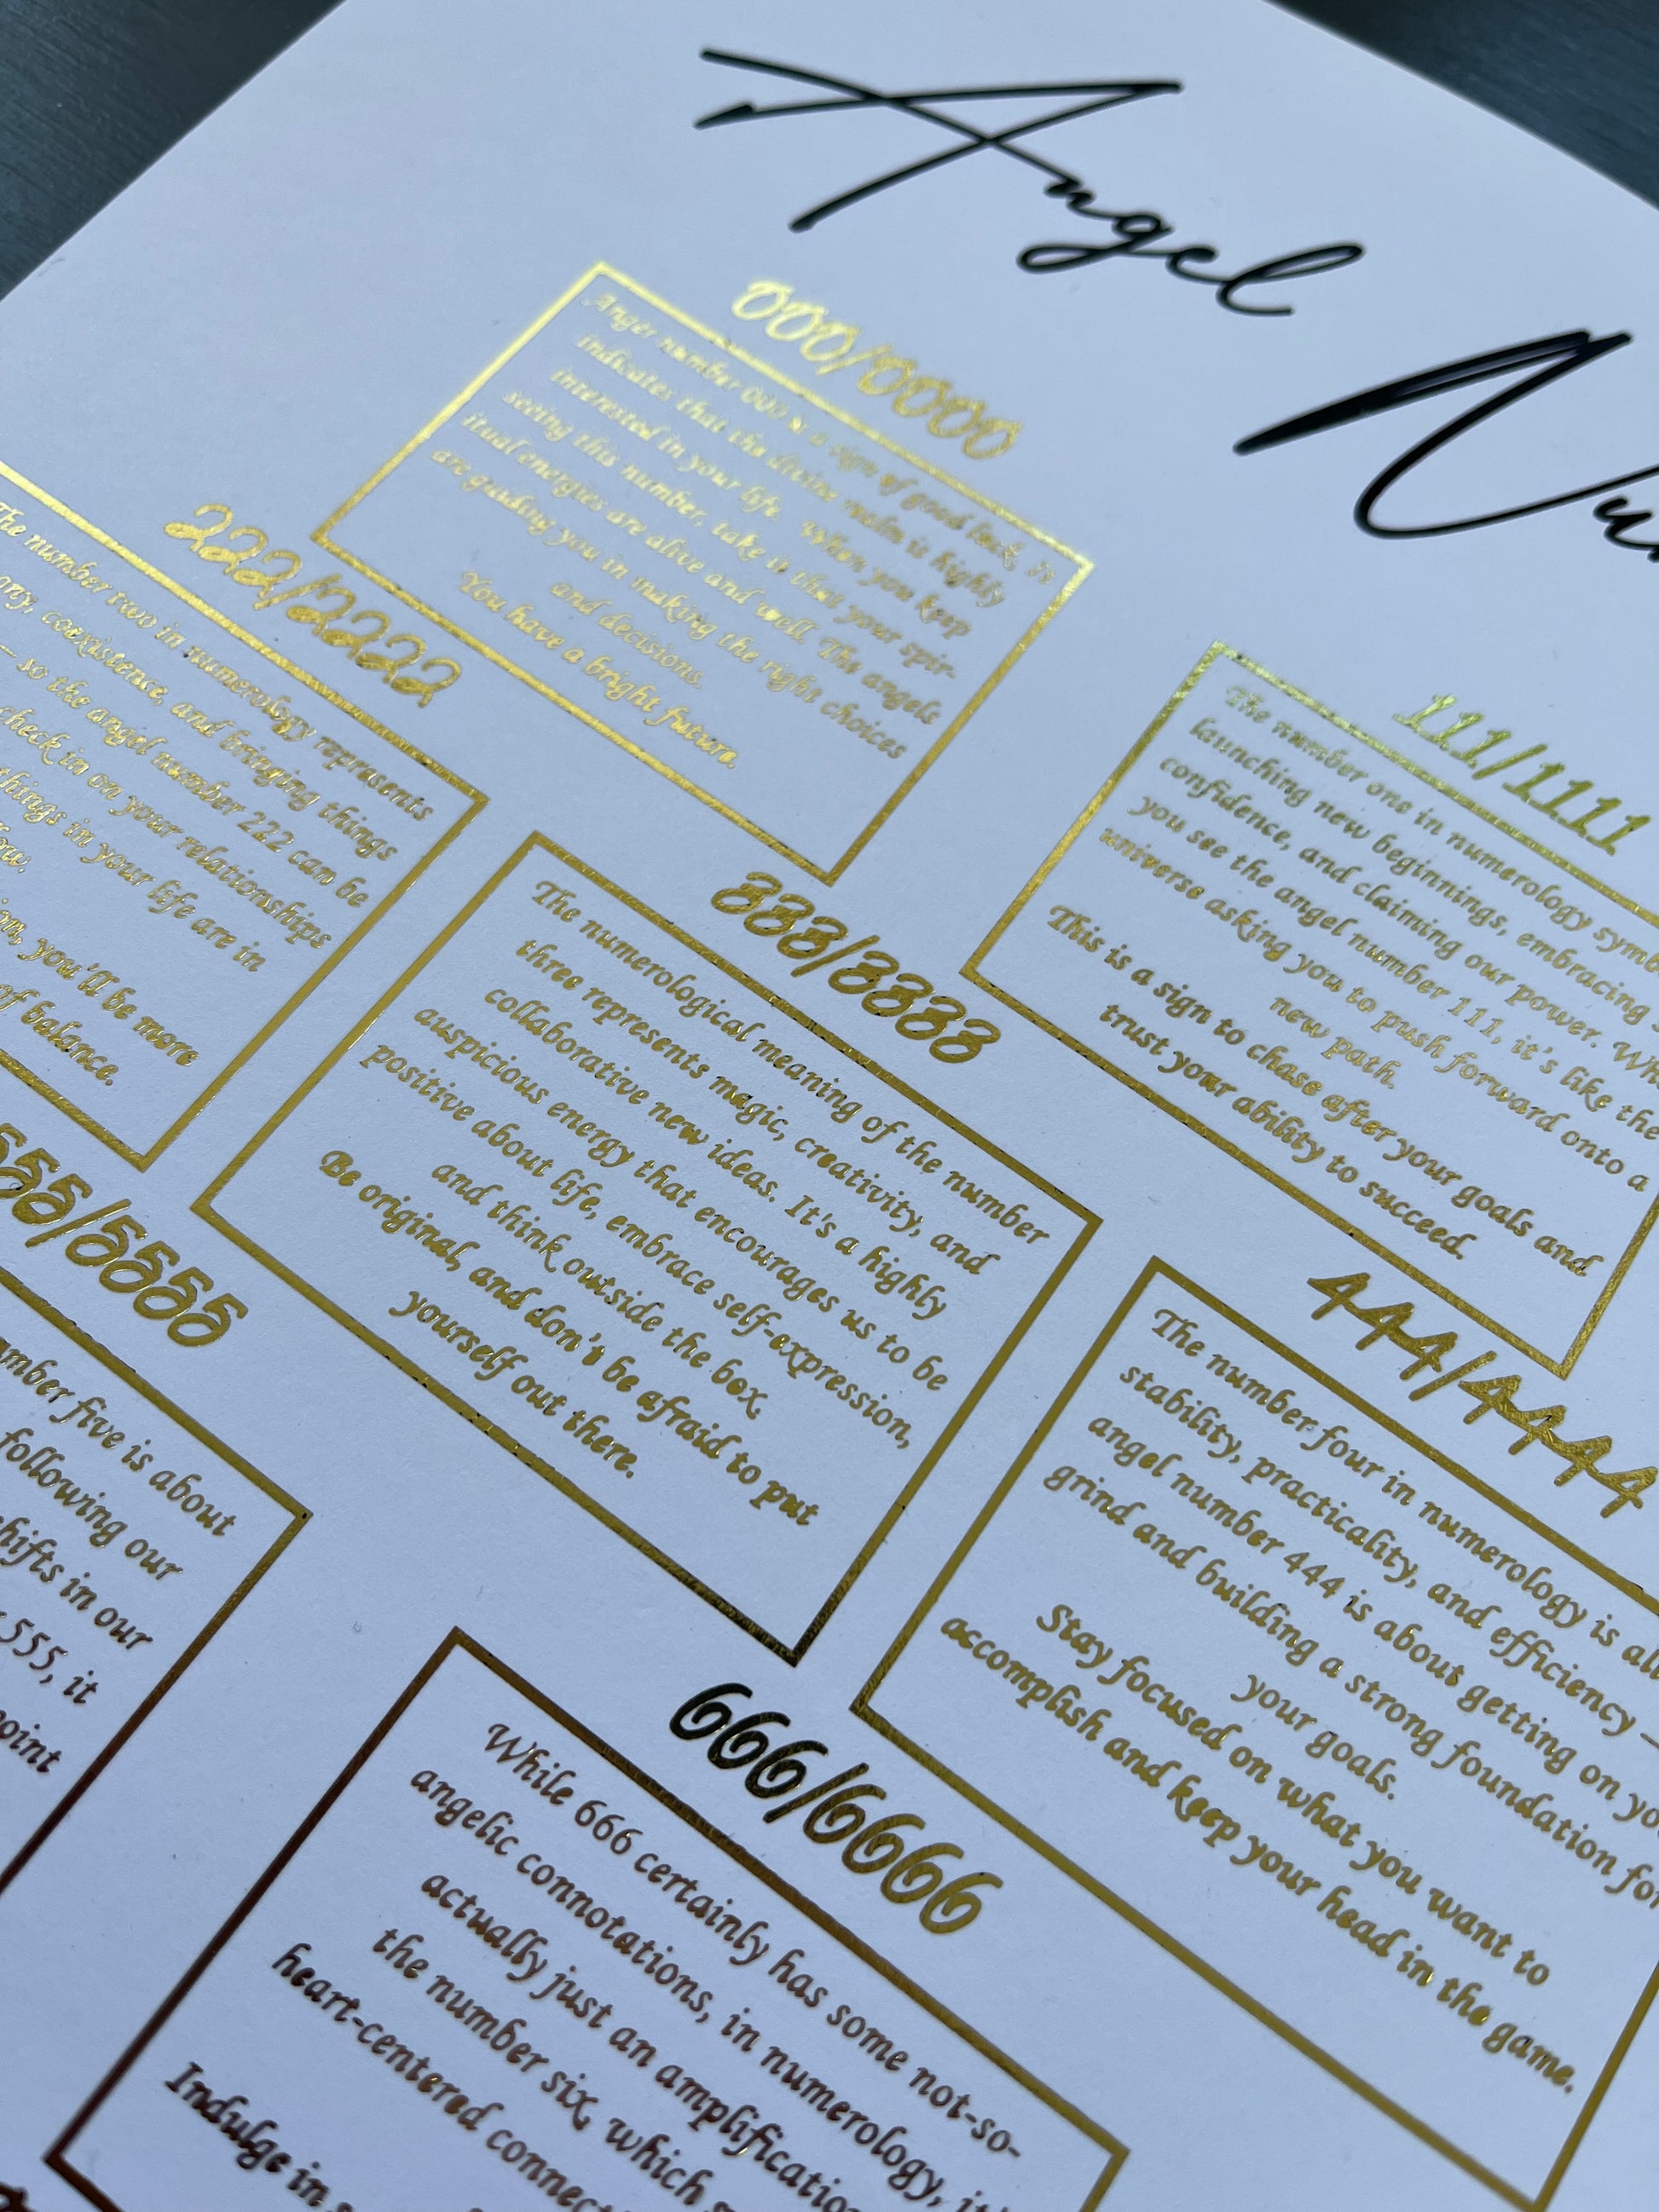 Angel Nu
000/0000
Anger number 000 is a sign of good luck, it
indicates that the divine realm is highly
interested in your life. When you keep
seeing this number, take it that your spir-
itual energies are alive and well. The angels
are guiding you in making the right choices
and decisions.
You have a bright future.
111/1111
The number one in numerology symb
launching new beginnings, embracing
confidence, and claiming our power. Wh
you see the angel number 111, it's like the
universe asking you to push forward onto a
new path.
This is a sign to chase after your goals and
trust your ability to succeed.
222/2222
The number two in numerology represents
any, coexistence, and bringing things
— so the angel number 222 can be
check in on your relationships
things in your life are in
ow.
ion, you'll be more
of balance.
333/3333
The numerological meaning of the number
three represents magic, creativity, and
collaborative new ideas. It's a highly
auspicious energy that encourages us to be
positive about life, embrace self-expression,
and think outside the box.
Be original, and don't be afraid to put
yourself out there.
444/4444
The number four in numerology is all
stability, practicality, and efficiency —
angel number 444 is about getting on yo
grind and building a strong foundation for
your goals.
Stay focused on what you want to
accomplish and keep your head in the game.
555/5555
mber five is about
following our
shifts in our
555, it
point
666/6666
While 666 certainly has some not-so-
angelic connotations, in numerology, it'
actually just an amplification
the number six, which
heart-centered connect
Indulge in s